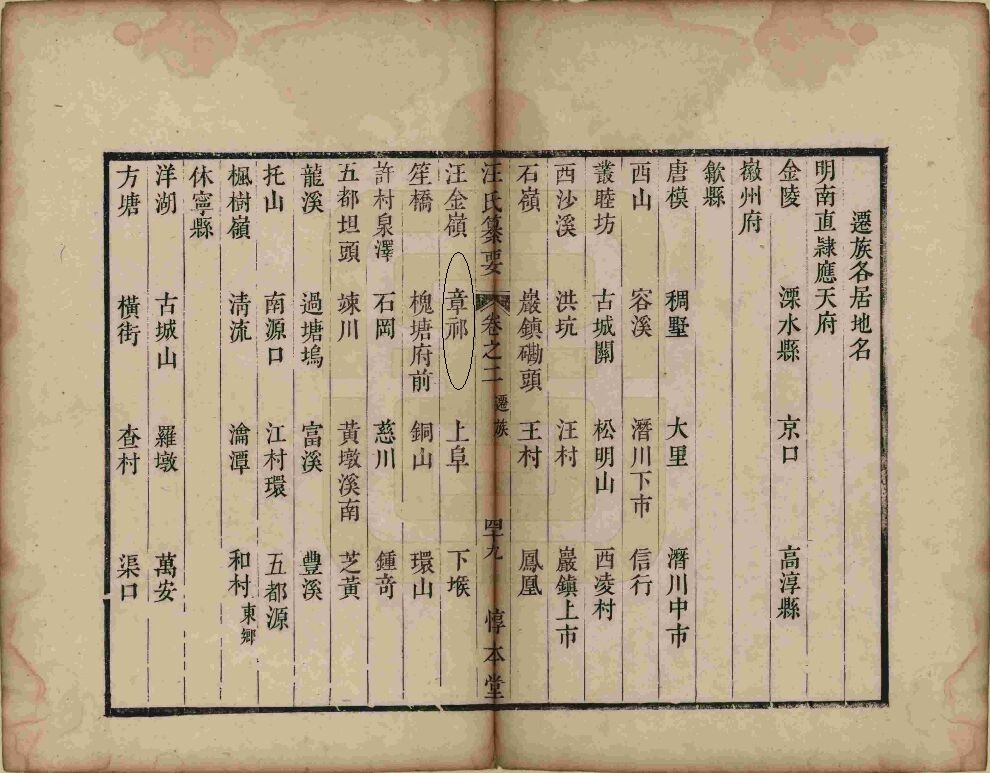 遷族各居地名
明南直隸應天府
金陵 溧水縣 京口 高淳縣
徽州府
歙縣
唐模 稠墅 大里 潛川中市
西山 容溪 潛川下市 信行
叢睦坊 古城關 松明山 西凌村
西沙溪 洪坑 汪村 巖鎮上市
石嶺 巖鎮磡頭 王村 鳳凰
汪氏纂要 卷之二 遷族 四十九 惇本堂
汪金嶺 章祁 上阜 下堠
笙橋 槐塘府前 銅山 環山
許村泉澤 石岡 慈川 鍾竒
五都坦頭 竦川 黃墩溪南 芝黃
龍溪 過塘塢 富溪 豐溪
托山 南源口 江村環 五都源
楓樹嶺 淸流 瀹潭 和村東鄉
休寧縣
洋湖 古城山 羅墩 萬安
方塘 橫街 杳村 渠口